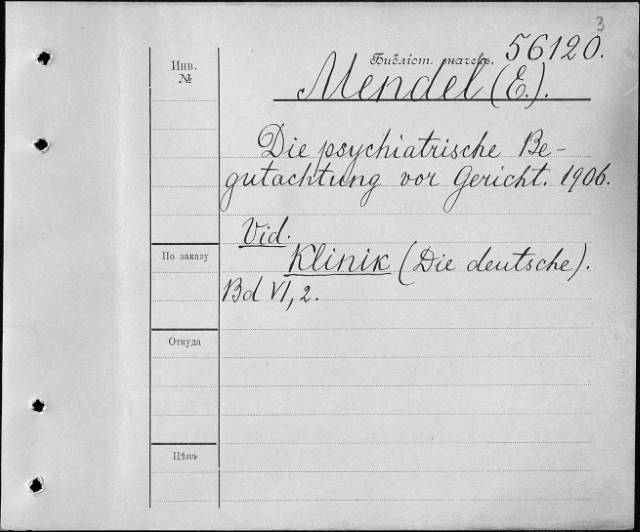 3
Инв.
№
Библіот. значекъ. 56120.
Mendel (E.).
Die psychiatrische Be-
gutachtung vor Gericht. 1906.
Vid.
Klinik (Die deutsche).
Bd VI, 2.
По заказу
Откуда
Цѣна